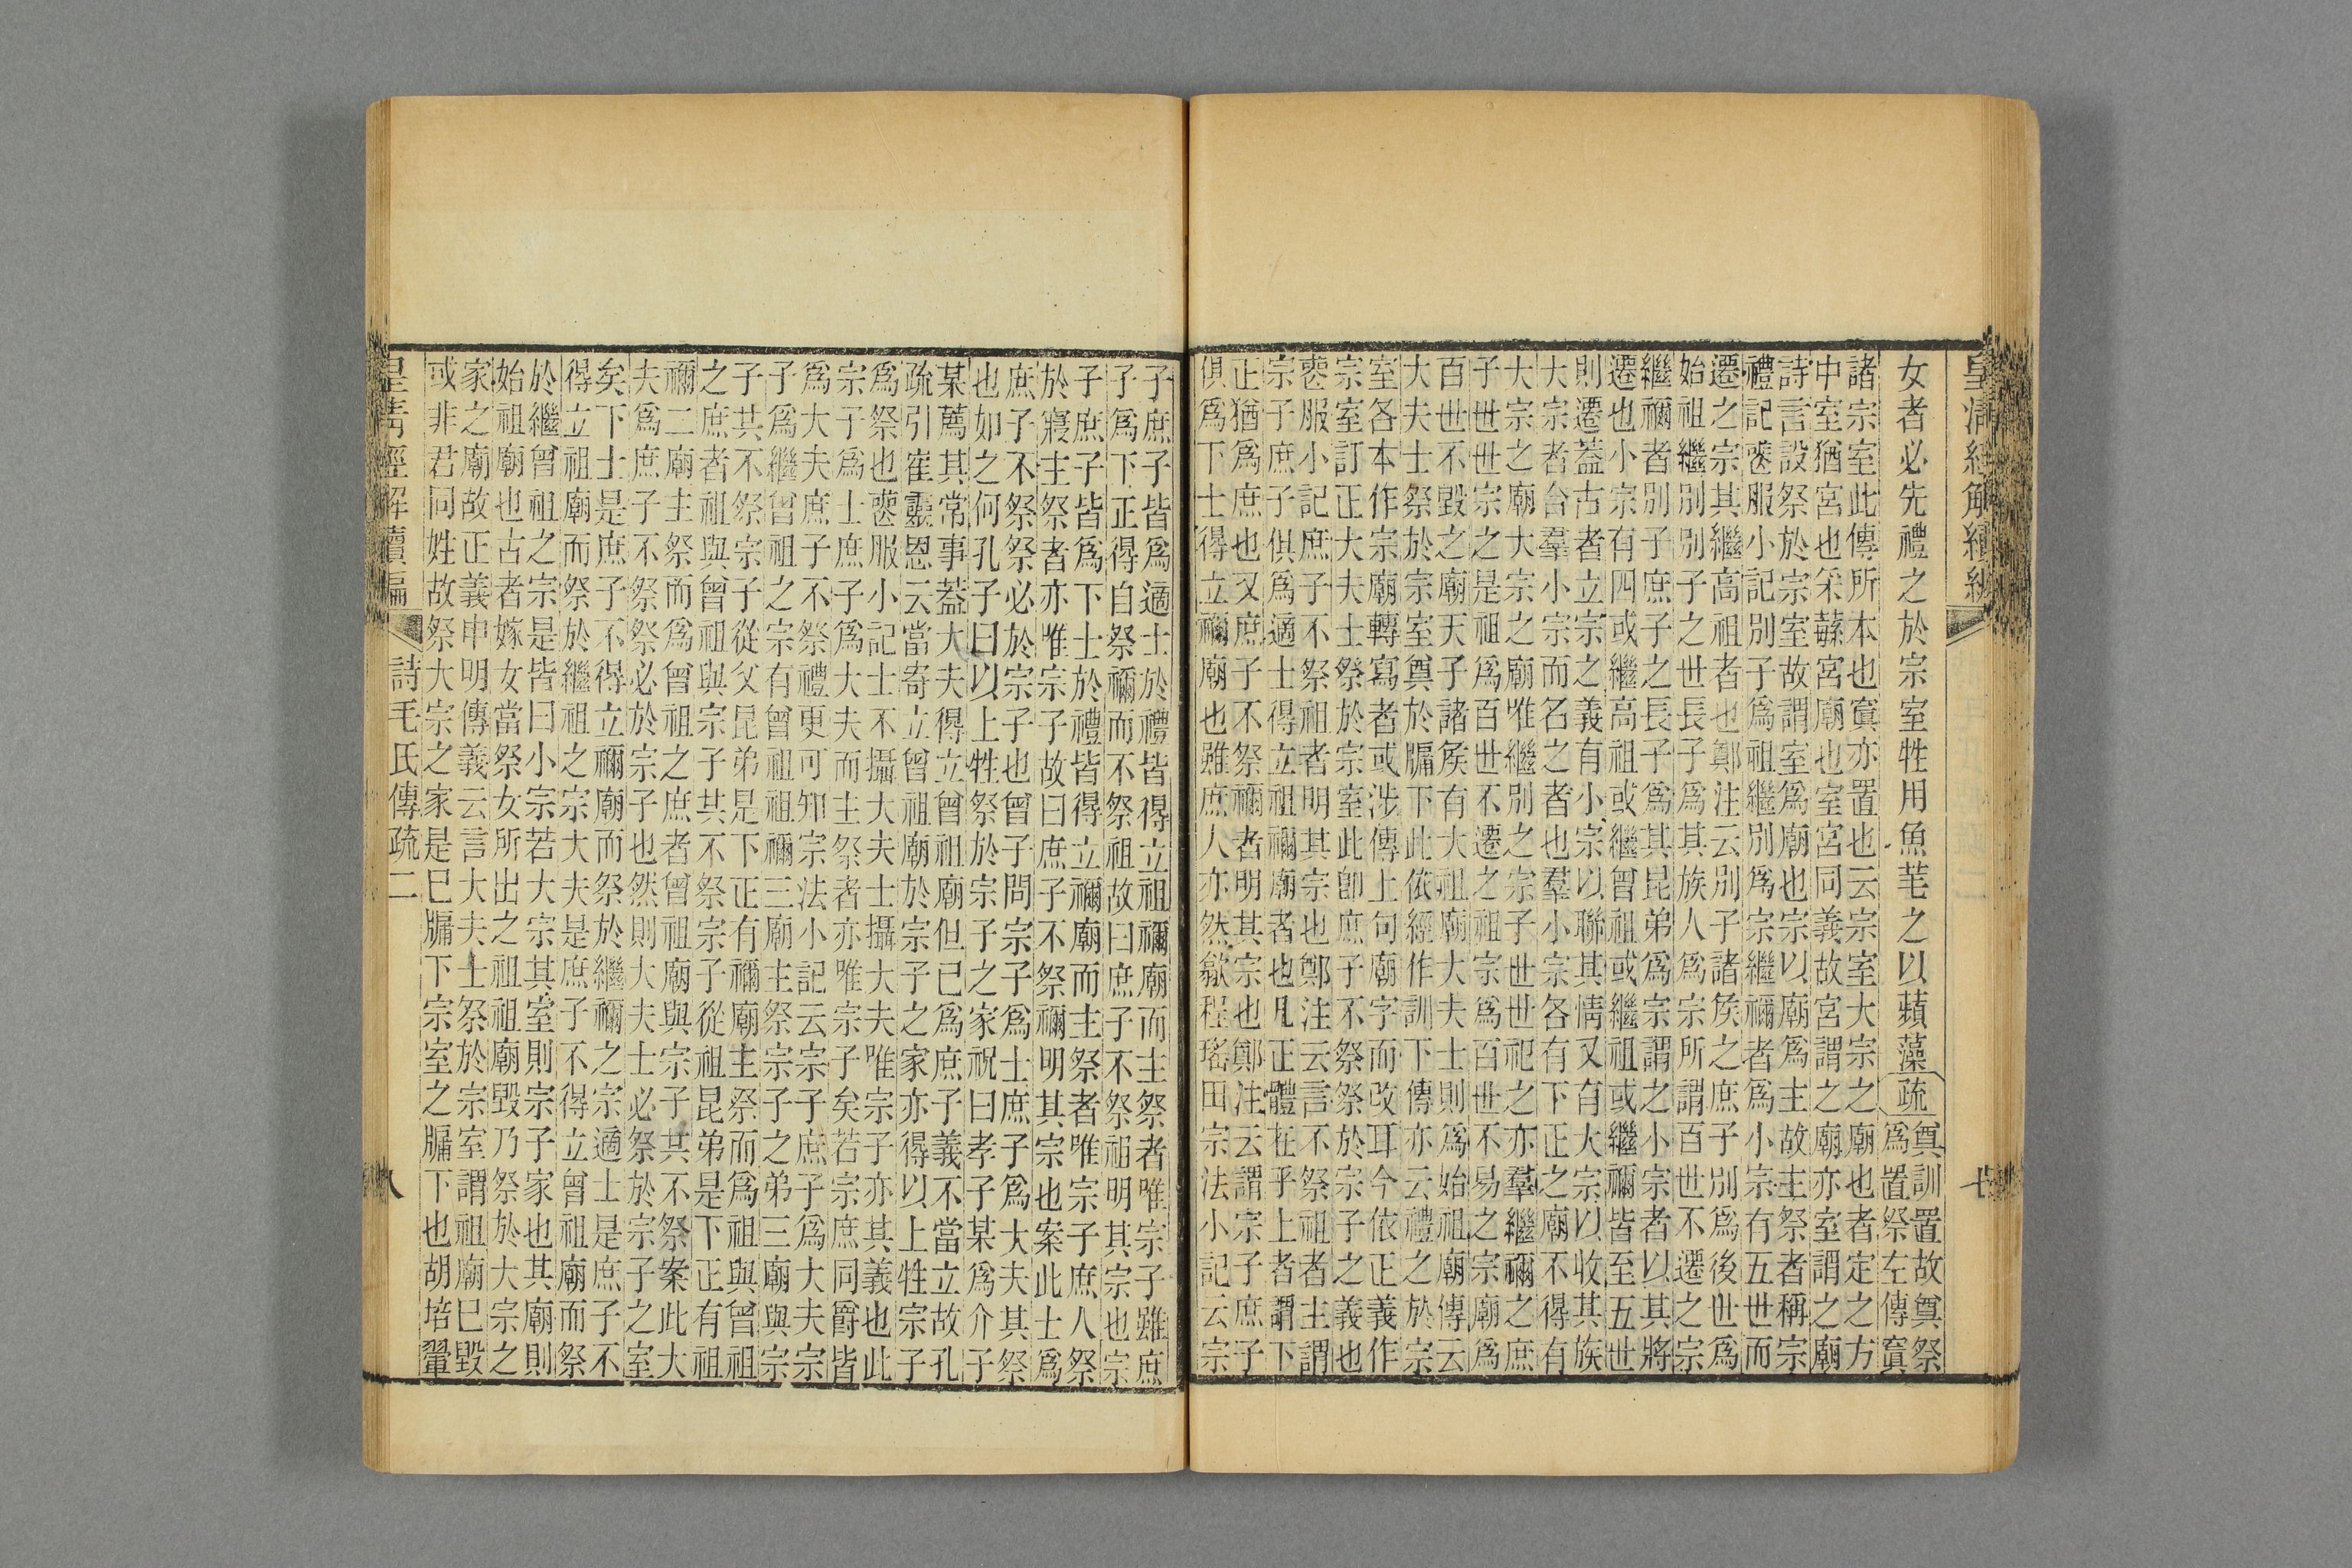 皇清經解續編
七
女者必先禮之於宗室牲用魚芼之以蘋藻疏奠訓置故奠祭
爲置祭左傳寘
諸宗室此傳所本也寘亦置也云宗室大宗之廟也者定之方
中室猶宮也采蘩宮廟也室宮同義故宮謂之廟亦室謂之廟
詩言設祭於宗室故謂室爲廟也宗以廟爲主故主祭者稱宗
禮記喪服小記別子爲祖繼別爲宗繼禰者爲小宗有五世而
遷之宗其繼高祖者也鄭注云別子諸侯之庶子別爲後世爲
始祖繼別別子之世長子爲其族人爲宗所謂百世不遷之宗
繼禰者別子庶子之長子爲其昆弟爲宗謂之小宗者以其將
遷也小宗有四或繼高祖或繼曾祖或繼祖或繼禰皆至五世
則遷蓋古者立宗之義有小宗以聯其情又有大宗以收其族
大宗者合羣小宗而名之者也羣小宗各有下正之廟不得有
大宗之廟大宗之廟唯繼別之宗子世世祀之亦羣繼禰之庶
子世世宗之是祖爲百世不遷之祖宗爲百世不易之宗廟爲
百世不毀之廟天子諸侯有大祖廟大夫士則爲始祖廟傳云
大夫士祭於宗室奠於牖下此依經作訓下傳亦云禮之於宗
室各本作宗廟轉寫者或涉傳上句廟字而改耳今依正義作
宗室訂正大夫士祭於宗室此卽庶子不祭祭於宗子之義也
喪服小記庶子不祭祖者明其宗也鄭注云言不祭祖者主謂
宗子庶子俱爲適士得立祖禰廟者也凡正體在乎上者謂下
正猶爲庶也又庶子不祭禰者明其宗也鄭注云謂宗子庶子
俱爲下士得立禰廟也雖庶人亦然歙程瑤田宗法小記云宗
子庶子皆爲適士於禮皆得立祖禰廟而主祭者唯宗子雖庶
子爲下正得自祭禰而不祭祖故曰庶子不祭祖明其宗也宗
子庶子皆爲下士於禮皆得立禰廟而主祭者唯宗子庶人祭
於寢主祭者亦唯宗子故曰庶子不祭禰明其宗也案此士爲
庶子不祭祭必於宗子也曾子問宗子爲士庶子爲大夫其祭
也如之何孔子曰以上牲祭於宗子之家祝曰孝子某爲介子
某薦其常事蓋大夫得立曾祖廟但已爲庶子義不當立故孔
疏引崔靈恩云當寄立曾祖廟於宗子之家亦得以上牲宗子
爲祭也喪服小記士不攝大夫士攝大夫唯宗子亦其義也此
宗子爲士庶子爲大夫而主祭者亦唯宗子矣若宗庶同爵皆
爲大夫庶子不祭禮更可知宗法小記云宗子庶子爲大夫宗
子爲繼曾祖之宗有曾祖禰三廟主祭宗子之弟三廟與宗
子其不祭宗子從父昆弟是下正有禰廟主祭而爲祖與曾祖
之庶者祖與曾祖與宗子其不祭宗子從祖昆弟是下正有祖
禰二廟主祭而爲曾祖之庶者曾祖廟與宗子其不祭案此大
夫爲庶子不祭祭必於宗子也然則大夫士必祭於宗子之室
矣下士是庶子不得立禰廟而祭於繼禰之宗適士是庶子不
得立祖廟而祭於繼祖之宗大夫是庶子不得立曾祖廟而祭
於繼曾祖之宗是皆曰小宗若大宗其室則宗子家也其廟則
始祖廟也古者嫁女當祭女所出之祖祖廟毀乃祭於大宗之
家之廟故正義申明傳義云言大夫士祭於宗室謂祖廟已毀
或非君同姓故祭大宗之家是已牖下宗室之牖下也胡培翬
皇清經解續編
詩毛氏傳疏二
八